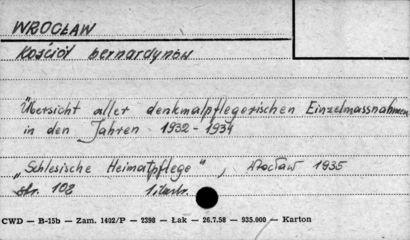 WROCŁAW
Kościół bernardynów
Übersicht aller denkmalpflegerischen Einzelmassnahmen
in den Jahren 1932-1934
„Schlesische Heimatpflege", Wrocław 1935
str. 108 1 ilustr.
CWD — B-15b — Zam. 1402/P — 2298 — Łak — 26.7.58 — 935.000 — Karton